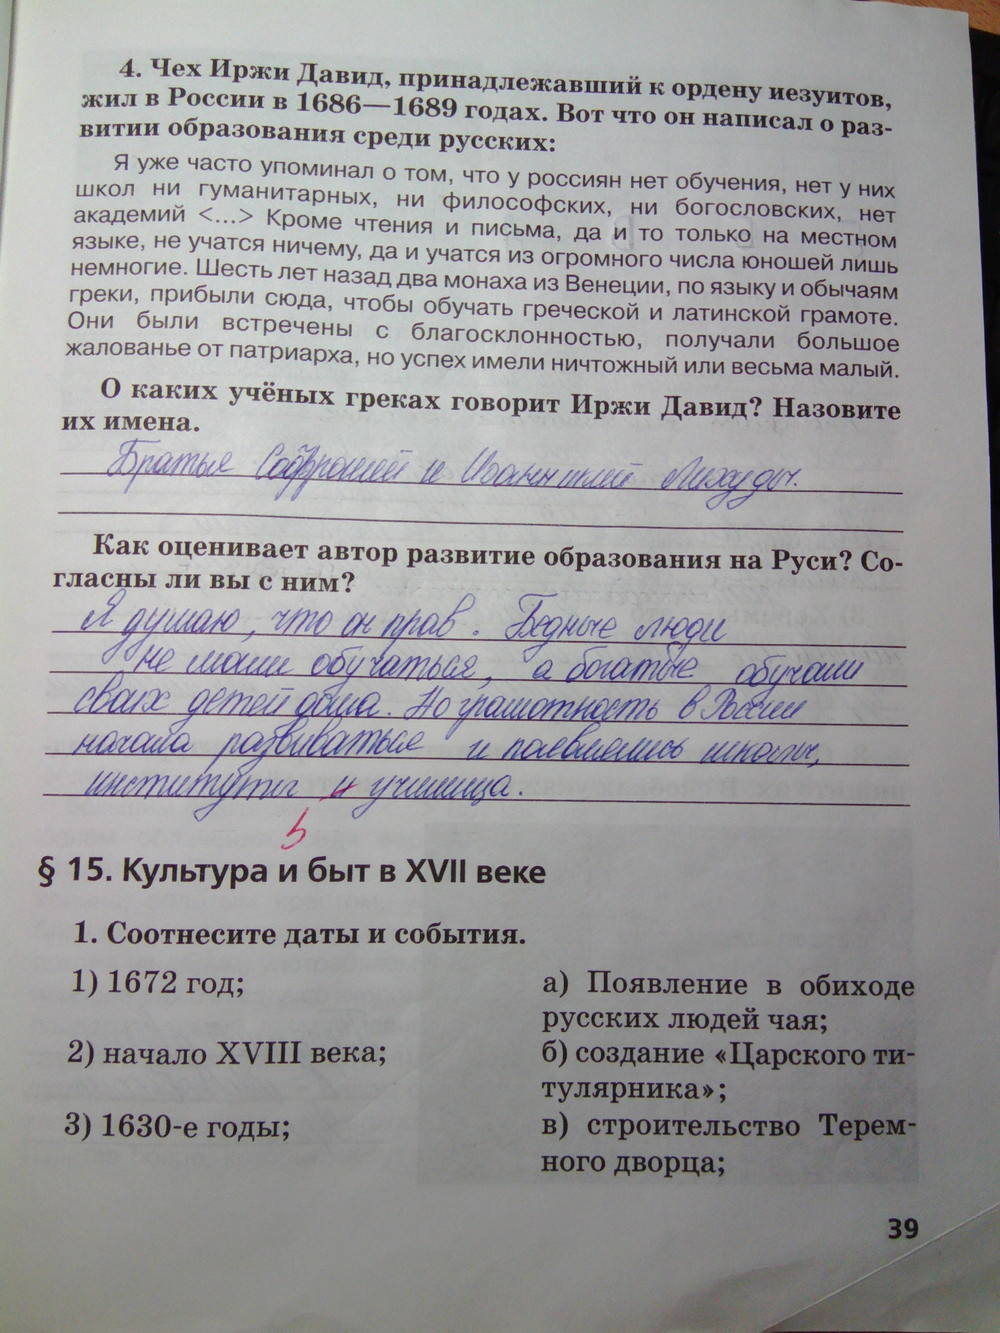 4. Чех Иржи Давид, принадлежавший к ордену иезуитов,
жил в России в 1686—1689 годах. Вот что он написал о раз-
витии образования среди русских:
Я уже часто упоминал о том, что у россиян нет обучения, нет у них
школ ни гуманитарных, ни философских, ни богословских, нет
академий <...> Кроме чтения и письма, да и то только на местном
языке, не учатся ничему, да и учатся из огромного числа юношей лишь
немногие. Шесть лет назад два монаха из Венеции, по языку и обычаям
греки, прибыли сюда, чтобы обучать греческой и латинской грамоте.
Они были встречены с благосклонностью, получали большое
жалованье от патриарха, но успех имели ничтожный или весьма малый.
О каких учёных греках говорит Иржи Давид? Назовите
их имена.
Братья Софроний и Иоанникий Лихуды.
Как оценивает автор развитие образования на Руси? Со-
гласны ли вы с ним?
Я думаю, что он прав. Бедные люди
не могли обучаться, а богатые обучали
своих детей дома. Но грамотность в России
начала развиваться и появлялись школы,
институты и училища.
5
§ 15. Культура и быт в XVII веке
1. Соотнесите даты и события.
1) 1672 год;
а) Появление в обиходе
русских людей чая;
2) начало XVIII века;
б) создание «Царского ти-
тулярника»;
3) 1630-е годы;
в) строительство Терем-
ного дворца;
39